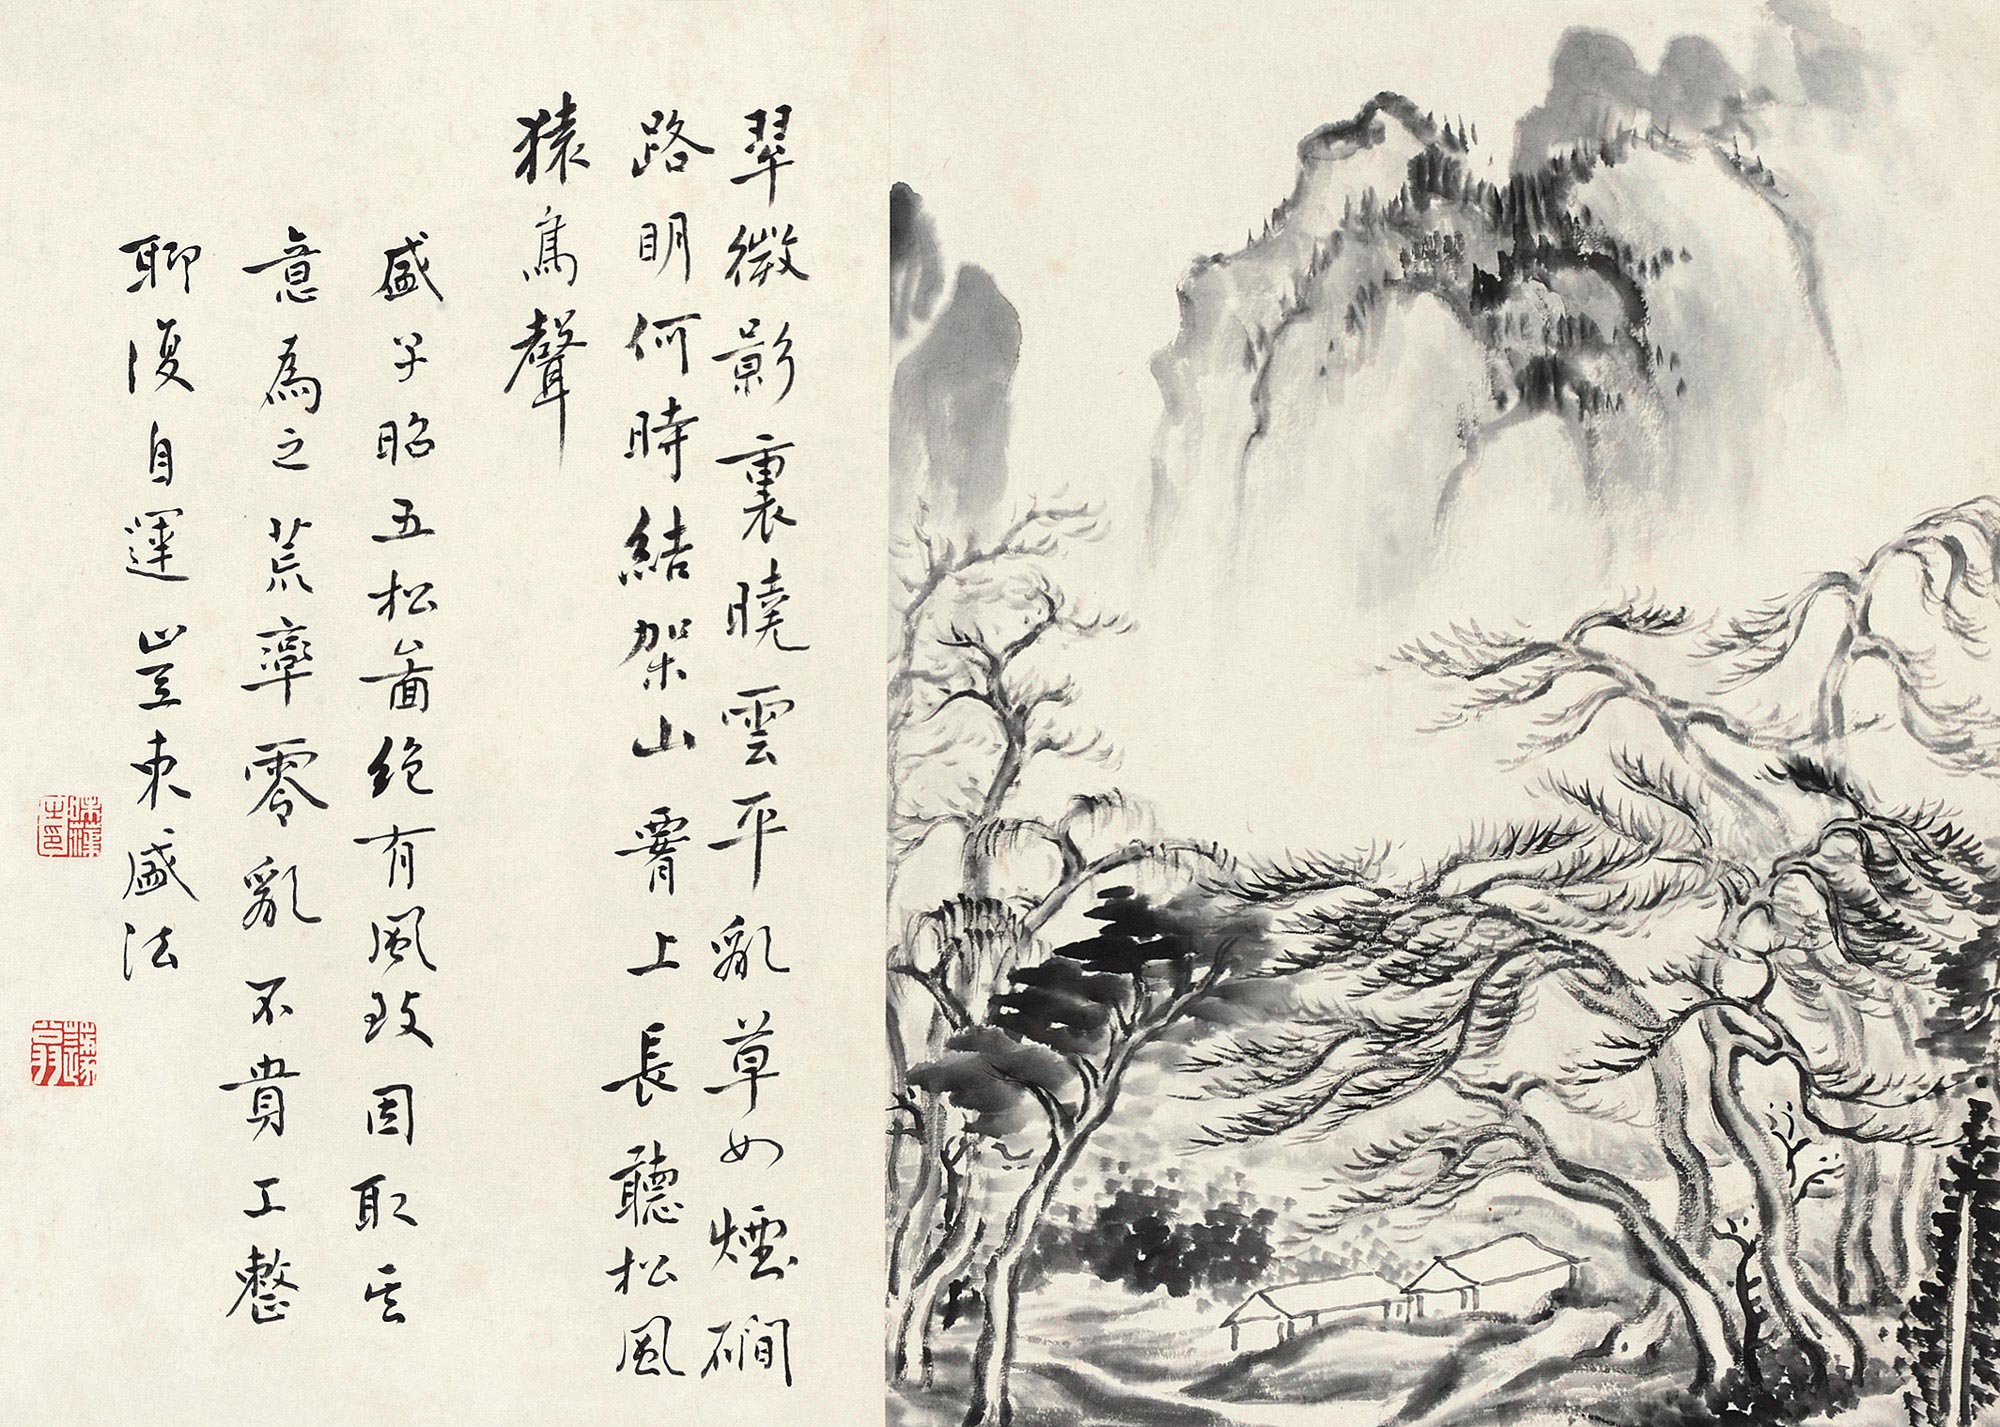 翠微影裏曉雲平亂草如煙磵
路明何時結架山霄上長聽松風
猿鳥聲
盛子昭五松啚絕有風致因取其
意為之荒率零亂不貴工整
聊復自運豈束盛法